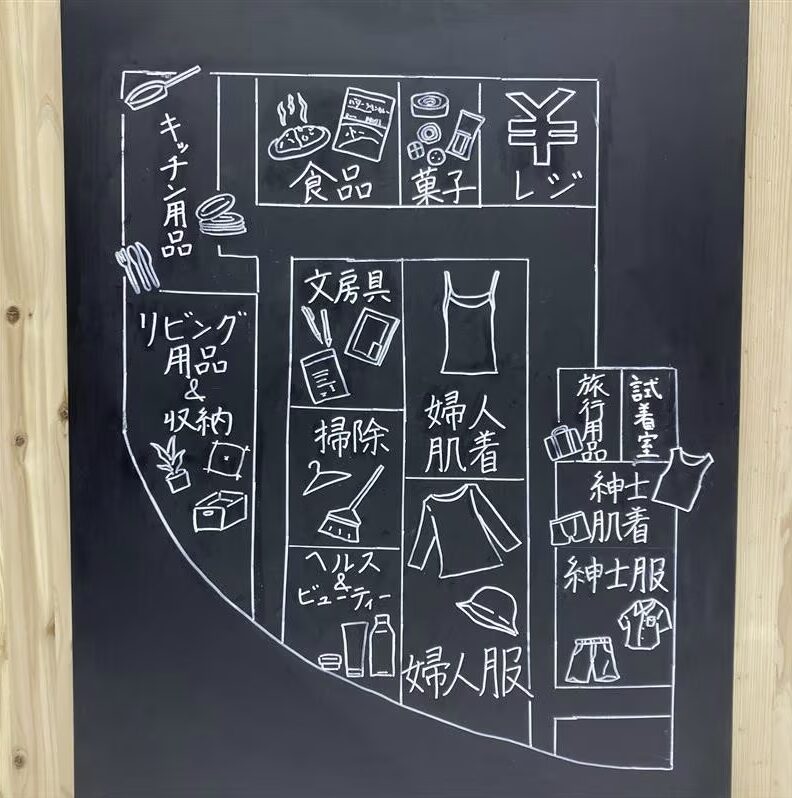 キッチン用品
食品
菓子
¥
レジ
リビング
用品
&
収納
文房具
掃除
ヘルス
&
ビューティー
婦人
肌着
婦人服
旅行用品
試着室
紳士
肌着
紳士服